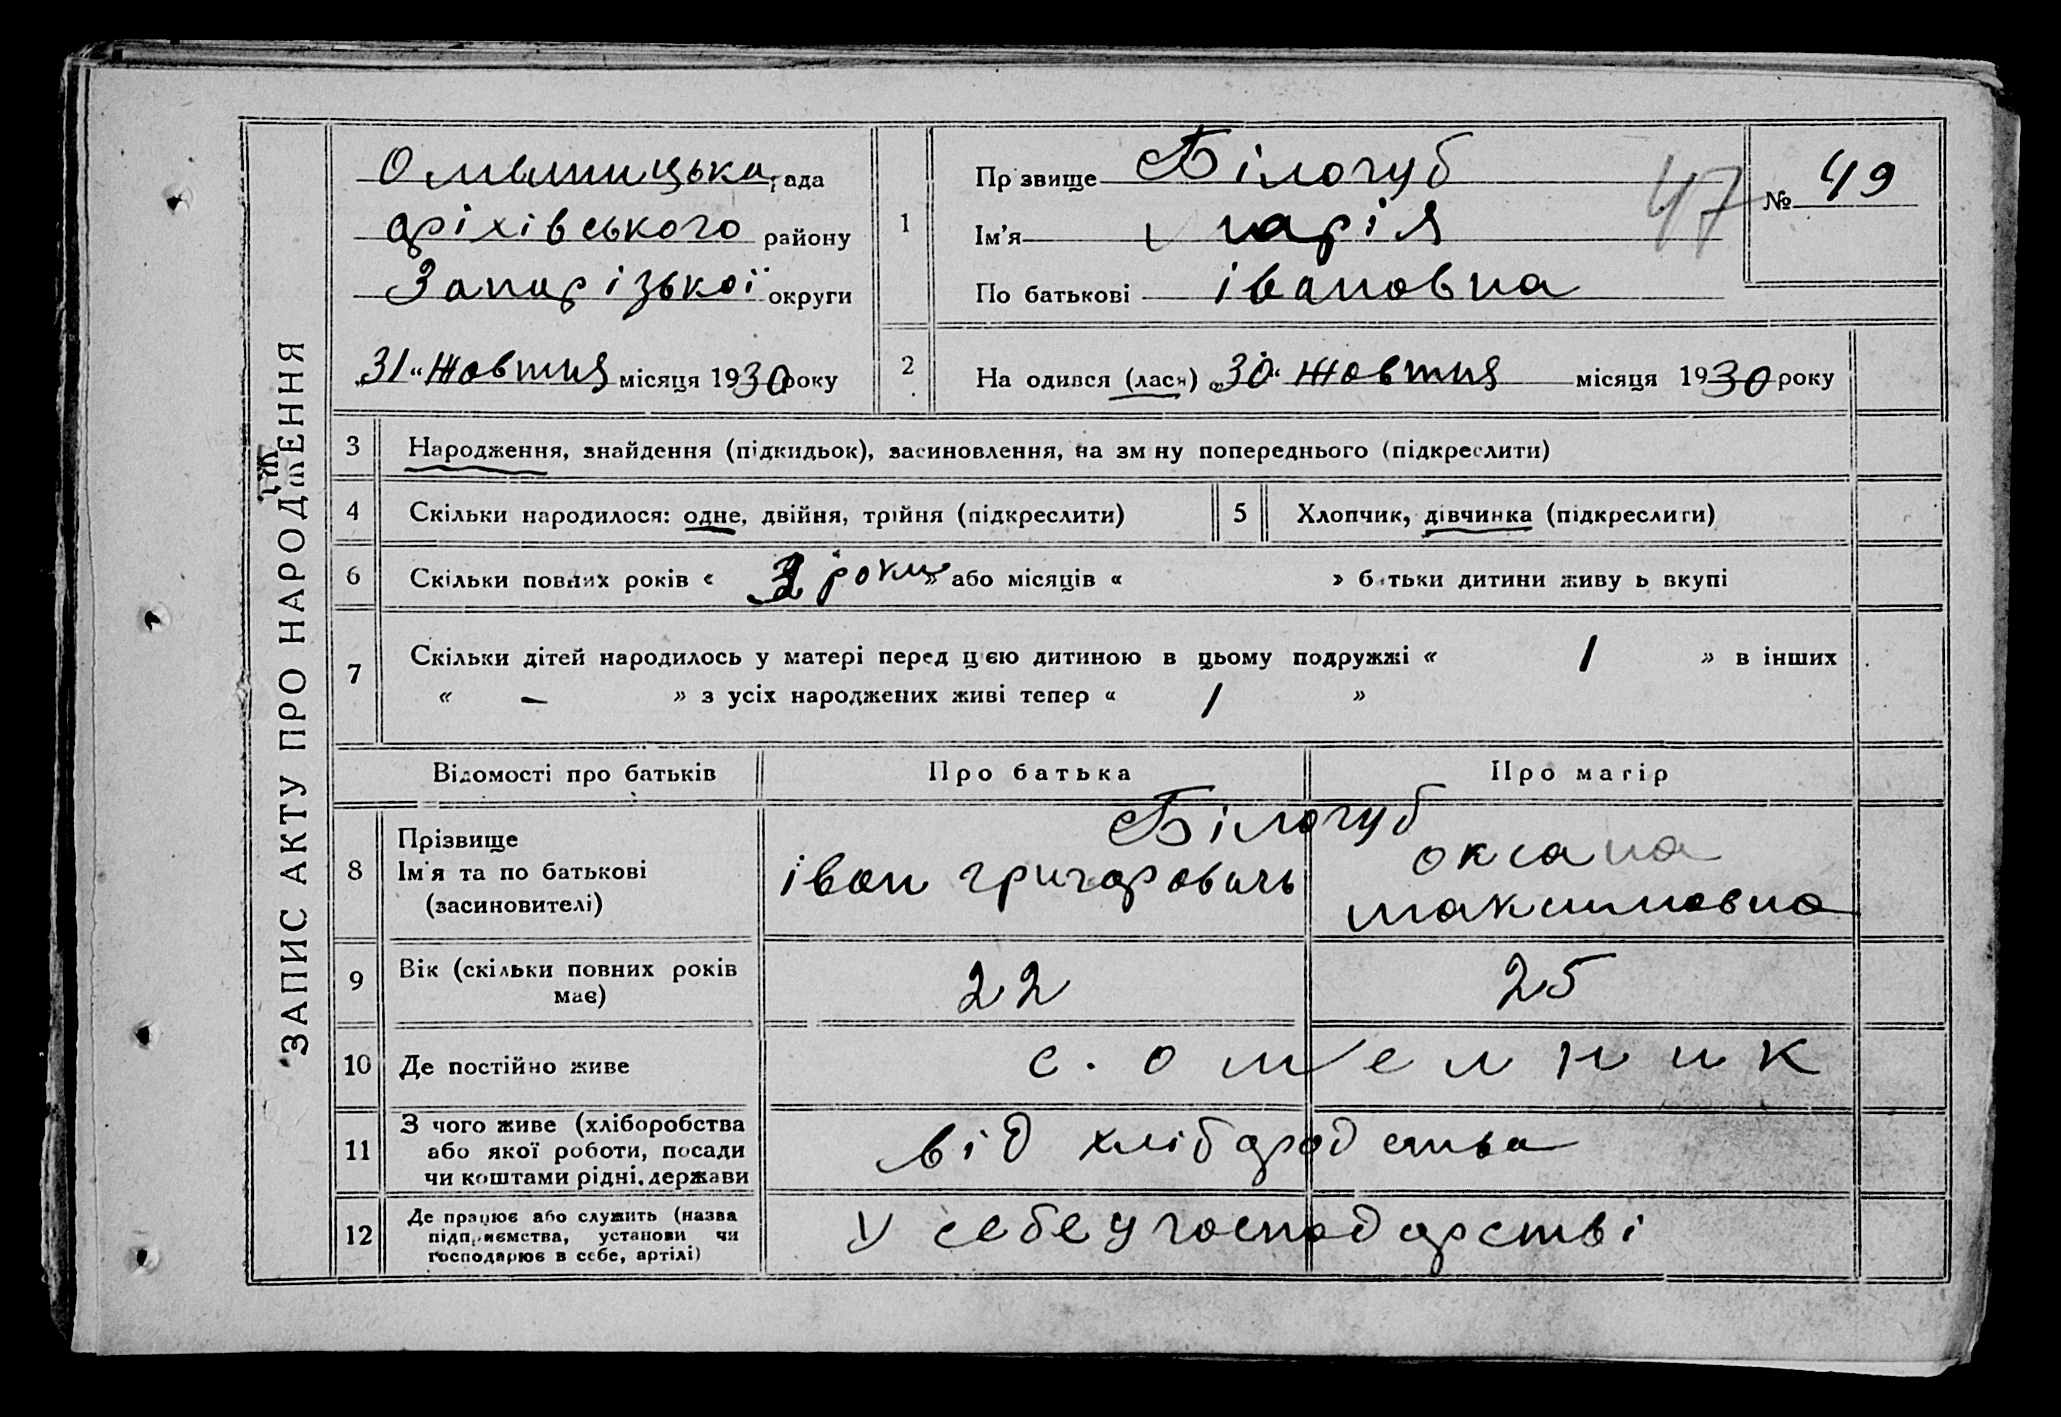 ЗАПИС АКТУ ПРО НАРОДЖЕННЯ
рада
оріхівського району
Запорізької округи
„31“ жовтня місяця 1930 року
1
Прізвище Білогуб
Ім'я марія
По батькові івановна
47
№ 49
2
На одився (лася) „30“ жовтня місяця 1930 року
3 Народження, знайдення (підкидьок), засиновлення, на зм ну попереднього (підкреслити)
4 Скільки народилося: одне, двійня, трійня (підкреслити)
5 Хлопчик, дівчинка (підкреслити)
6 Скільки повних років « 3 роки » або місяців « » батьки дитини живу ь вкупі
7 Скільки дітей народилось у матері перед цією дитиною в цьому подружжі « 1 » в інших
« – » з усіх народжених живі тепер « 1 »
Відомості про батьків Про батька Про матір
8 Прізвище
Ім'я та по батькові
(засиновителі)
Білогуб
іван григорович
оксана
максимовна
9 Вік (скільки повних років
має)
22 25
10 Де постійно живе с. омелник
11 З чого живе (хліборобства
або якої роботи, посади
чи коштами рідні, держави
від хлібородства
12 Де працює або служить (назва
підприємства, установи чи
господарює в себе, артілі)
У себе у господарстві